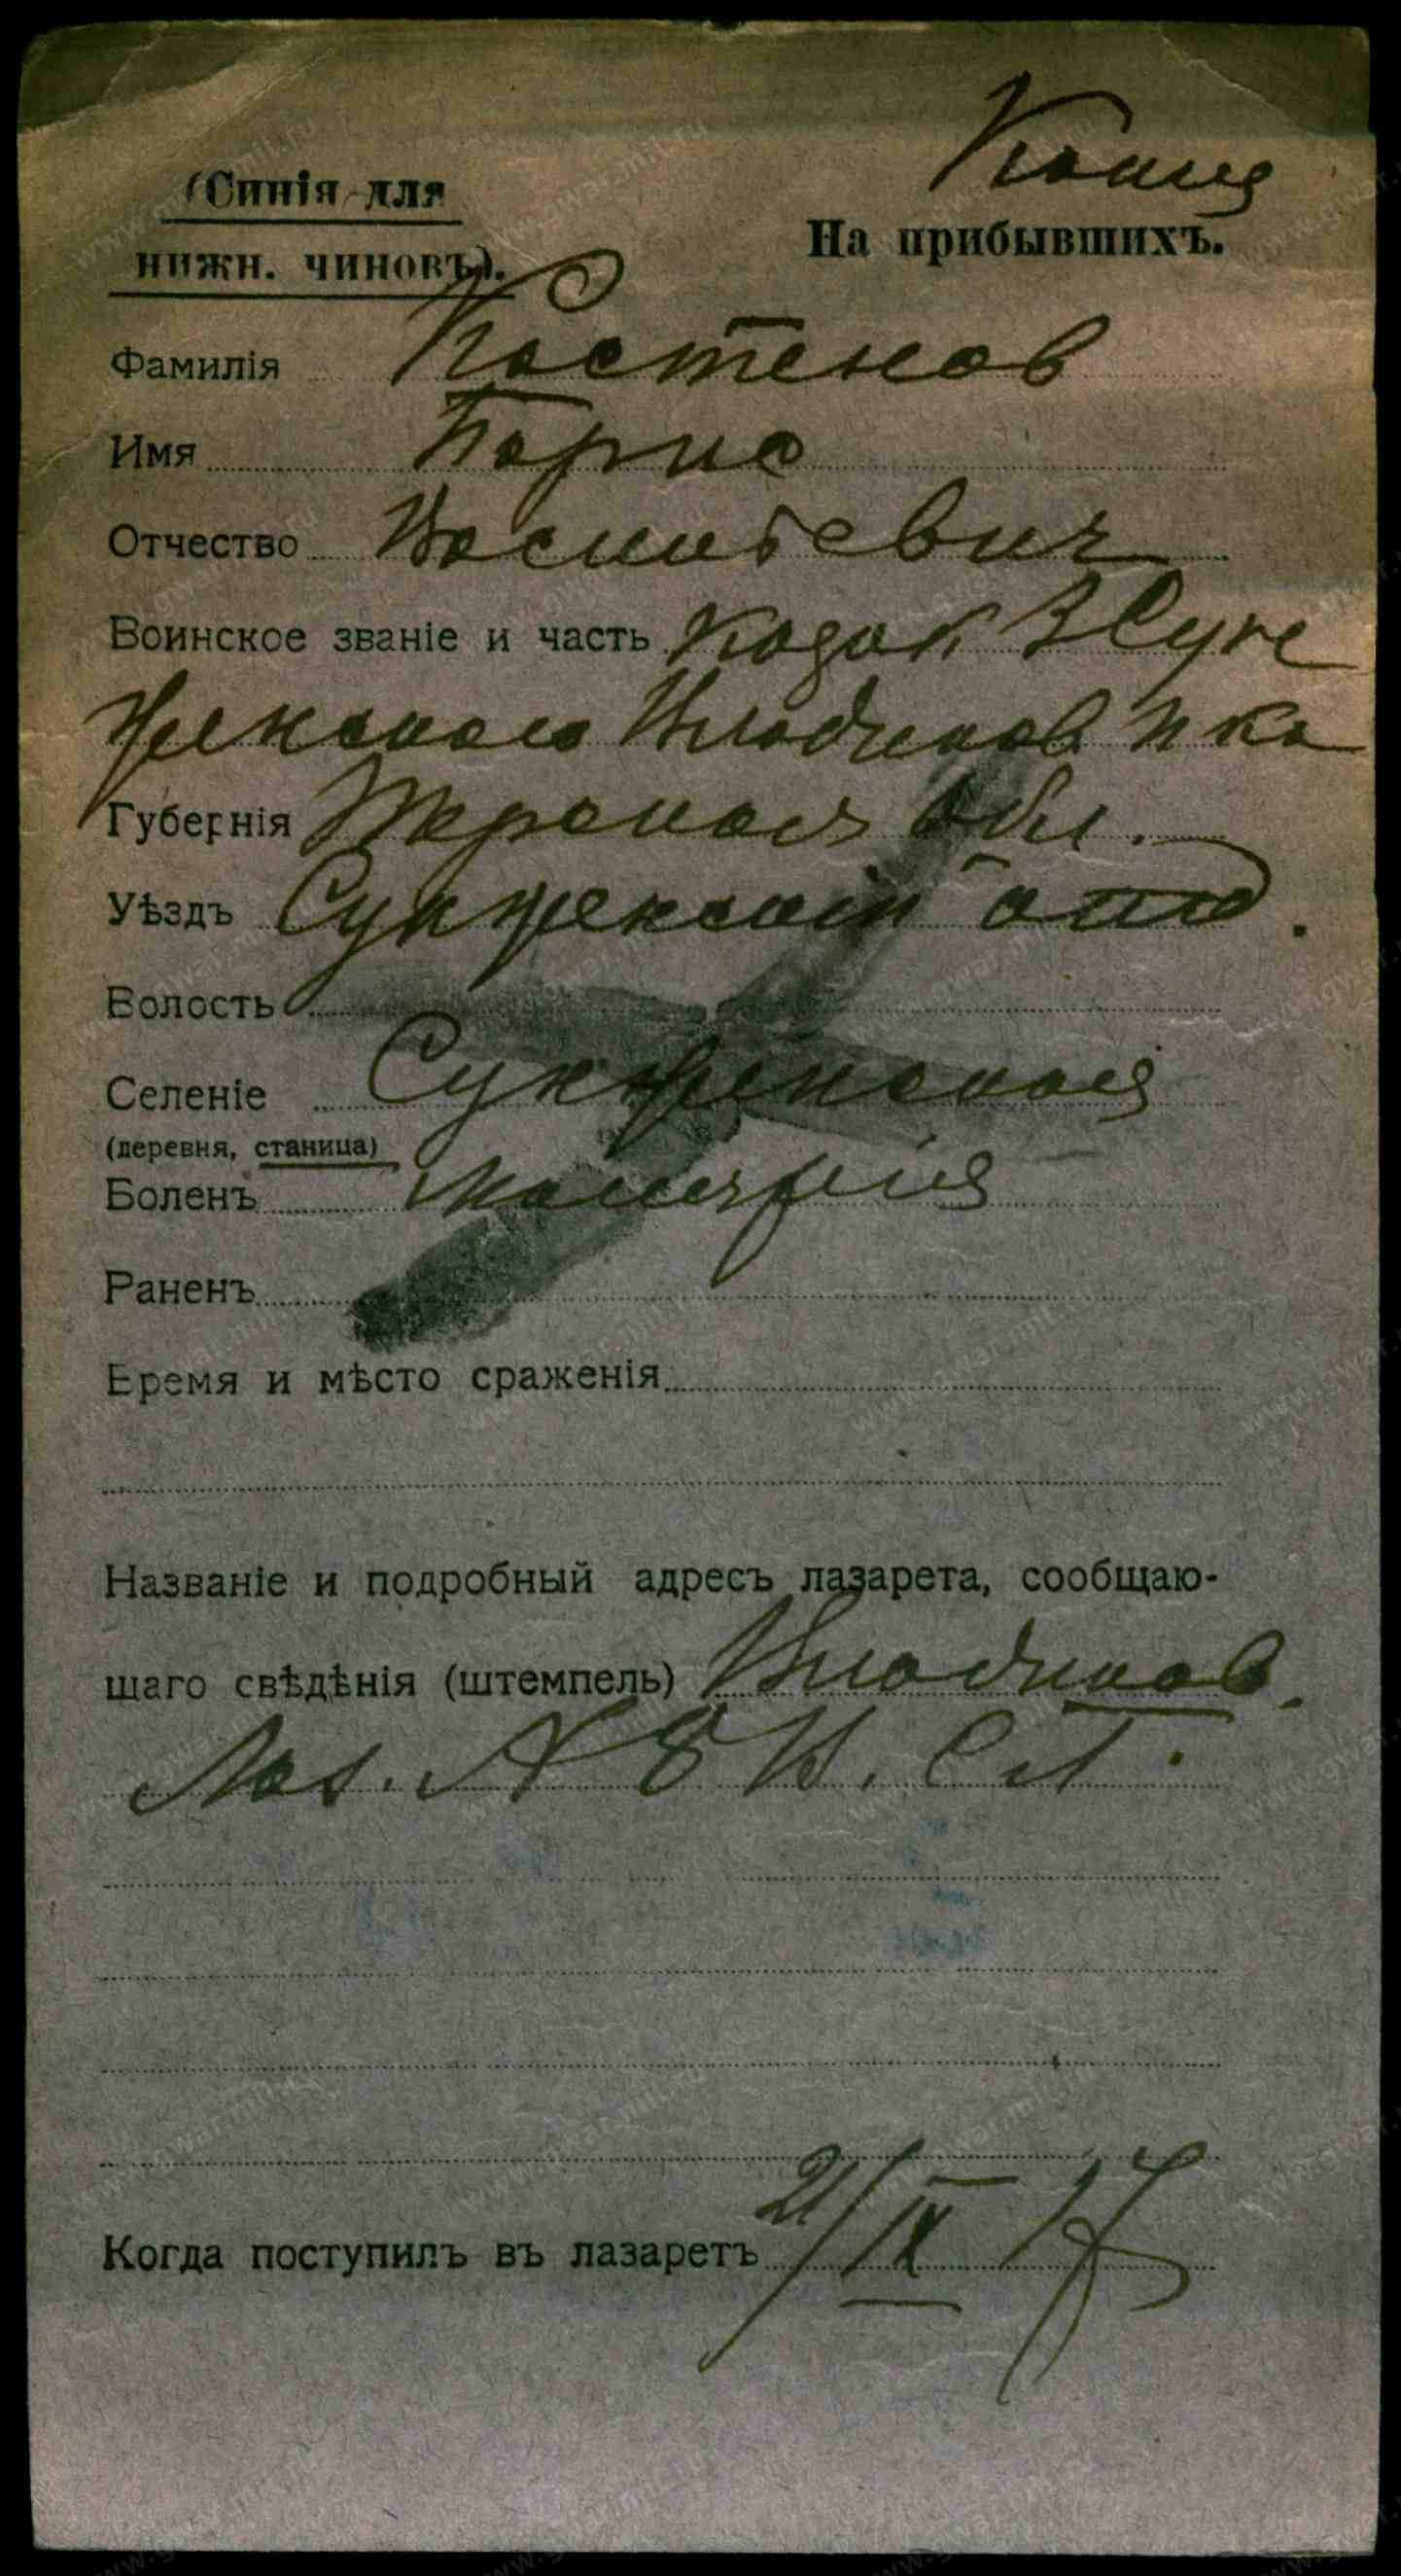 Копия
(Синія для
нижн. чиновъ).
На прибывшихъ.
Фамилія Костенов
Имя Борис
Отчество Васильевич
Воинское званіе и часть Козак 3 Сун
женского Владикав п ка
Губернія Терская обл.
Уѣздъ Сунженский отд.
Волость
Селеніе Сунженская
(деревня, станица)
Боленъ Малярія
Раненъ
Время и мѣсто сраженія
Названіе и подробный адресъ лазарета, сообщаю-
щаго свѣдѣнія (штемпель) Владикав.
Лаз. № 8 В.
Когда поступилъ въ лазаретъ 21/IX 17